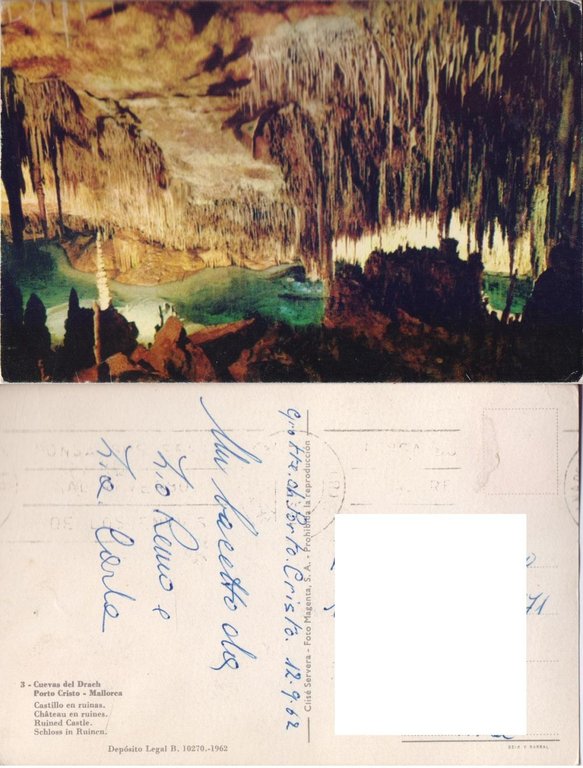 Un bacetto da
Zio Remo e
Zia Carla
Grotta di Porto Cristo. 12.9.62
Clisé Servera - Foto Magenta, S. A. - Prohibida la reproducción
3 - Cuevas del Drach
Porto Cristo - Mallorca
Castillo en ruinas.
Château en ruines.
Ruined Castle.
Schloss in Ruinen.
Depósito Legal B. 10270.-1962
SEIX Y BARRAL
71